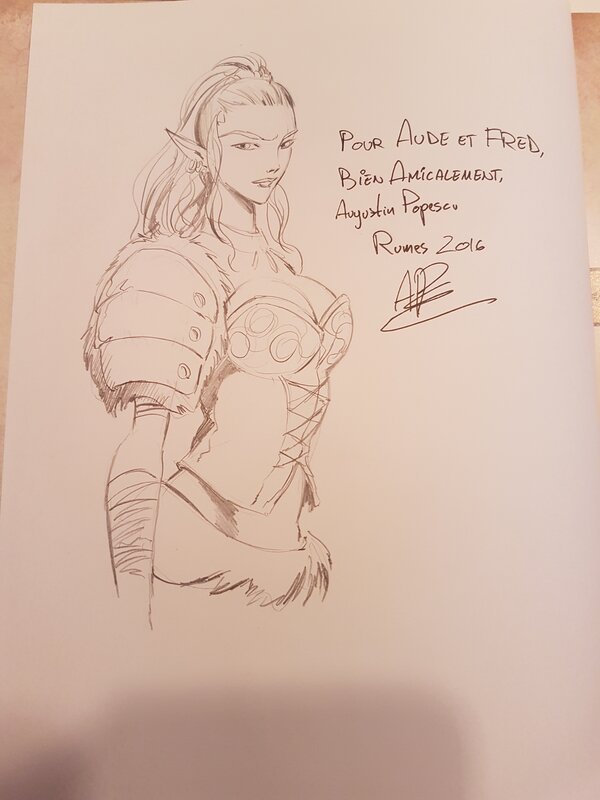 POUR AUDE ET FRED,
BIEN AMICALEMENT,
Augustin Popescu
RUMES 2016